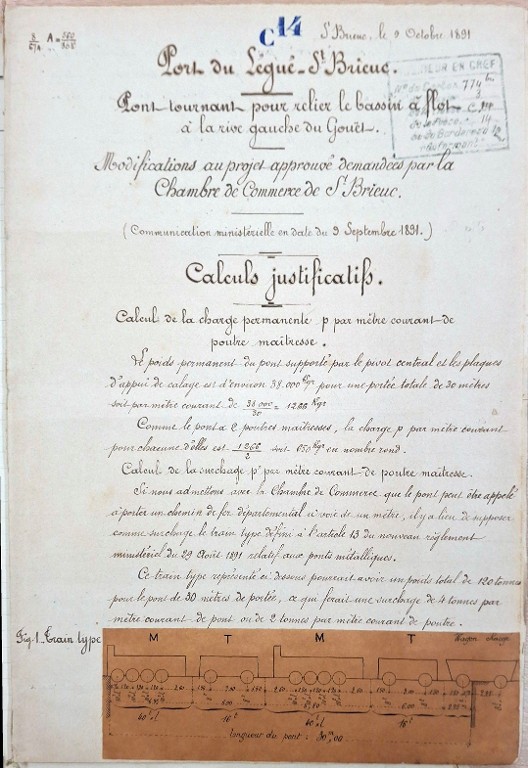 St Brieuc, le 9 Octobre 1891
C 14
A =
Port du Légué-St Brieuc.
INGÉNIEUR EN CHEF
774 bis
Pont tournant pour relier le bassin à flot
à la rive gauche du Gouët.
Modifications au projet approuvé demandées par la
Chambre de Commerce de St Brieuc.
(Communication ministérielle en date du 9 Septembre 1891.)
Calculs justificatifs.
Calcul de la charge permanente p par mètre courant de
poutre maîtresse.
Le poids permanent du pont supporté par le pivot central et les plaques
d'appui de calage est d'environ 38.000 Kgr pour une portée totale de 30 mètres
soit par mètre courant de 38 000/30 = 1266 Kgr
Comme le pont a 2 poutres maîtresses, la charge p par mètre courant
pour chacune d'elles est 1266/2 soit 650 Kgr en nombre rond.
Calcul de la surcharge p' par mètre courant de poutre maîtresse.
Si nous admettons avec la Chambre de Commerce que le pont peut être appelé
à porter un chemin de fer départemental à voie de un mètre, il y a lieu de supposer
comme surcharge le train type défini à l'article 13 du nouveau règlement
ministériel du 29 Août 1891 relatif aux ponts métalliques.
Ce train type représenté ci dessous pourrait avoir un poids total de 120 tonnes
pour le pont de 30 mètres de portée, ce qui ferait une surcharge de 4 tonnes par
mètre courant de pont ou de 2 tonnes par mètre courant de poutre.
Fig. 1. Train type
M T M T
Wagon chargé
longueur du pont = 30m,00